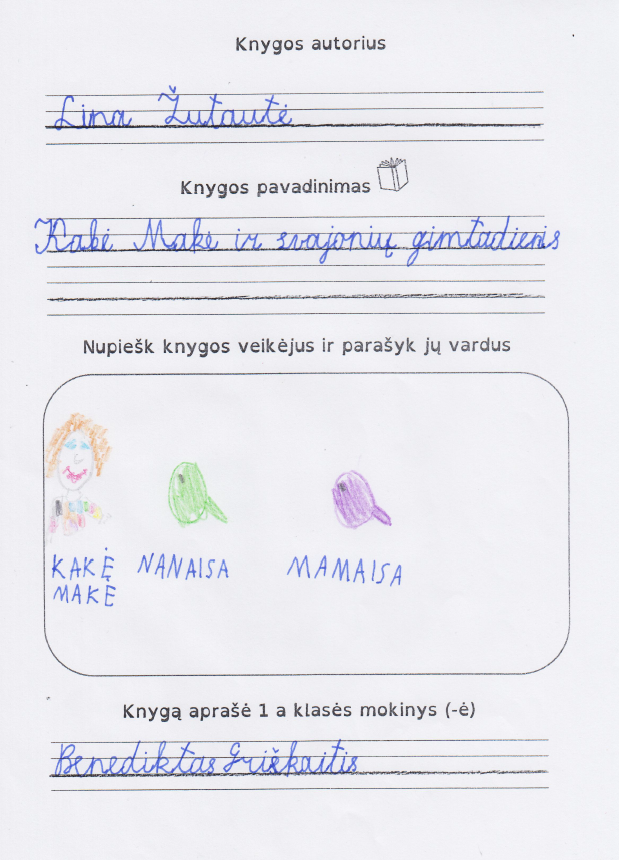 Knygos autorius
Lina Žutautė
Knygos pavadinimas
Kakė Makė ir svajonių gimtadienis
Nupiešk knygos veikėjus ir parašyk jų vardus
KAKĖ NANAISA MAMAISA
MAKĖ
Knygą aprašė 1 a klasės mokinys (-ė)
Benediktas Griškaitis